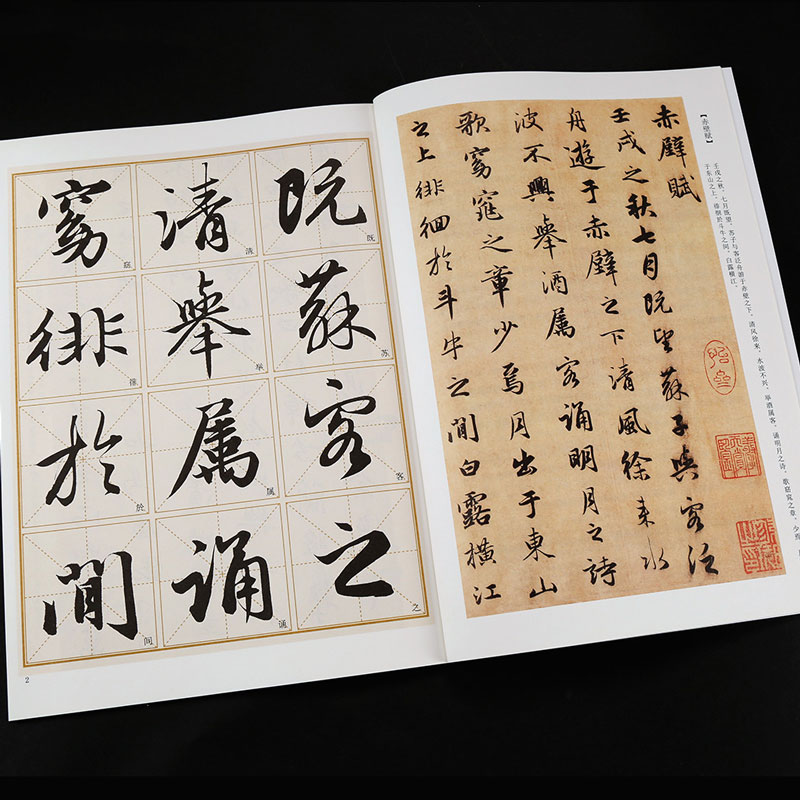 既蘇客之
清舉属誦
窈徘於間
既
苏
客
之
清
举
属
诵
徘
於
间
2
【赤壁赋】
壬戌之秋，七月既望，苏子与客泛舟游于赤壁之下。清风徐来，水波不兴。举酒属客，诵明月之诗，歌窈窕之章。少焉
于东山之上，徘徊於斗牛之间。白露横江，
赤壁賦
壬戌之秋七月既望蘇子與客泛
舟遊于赤壁之下清風徐来水
波不興舉酒属客誦明月之詩
歌窈窕之章少焉月出于東山
之上徘徊於斗牛之間白露橫江